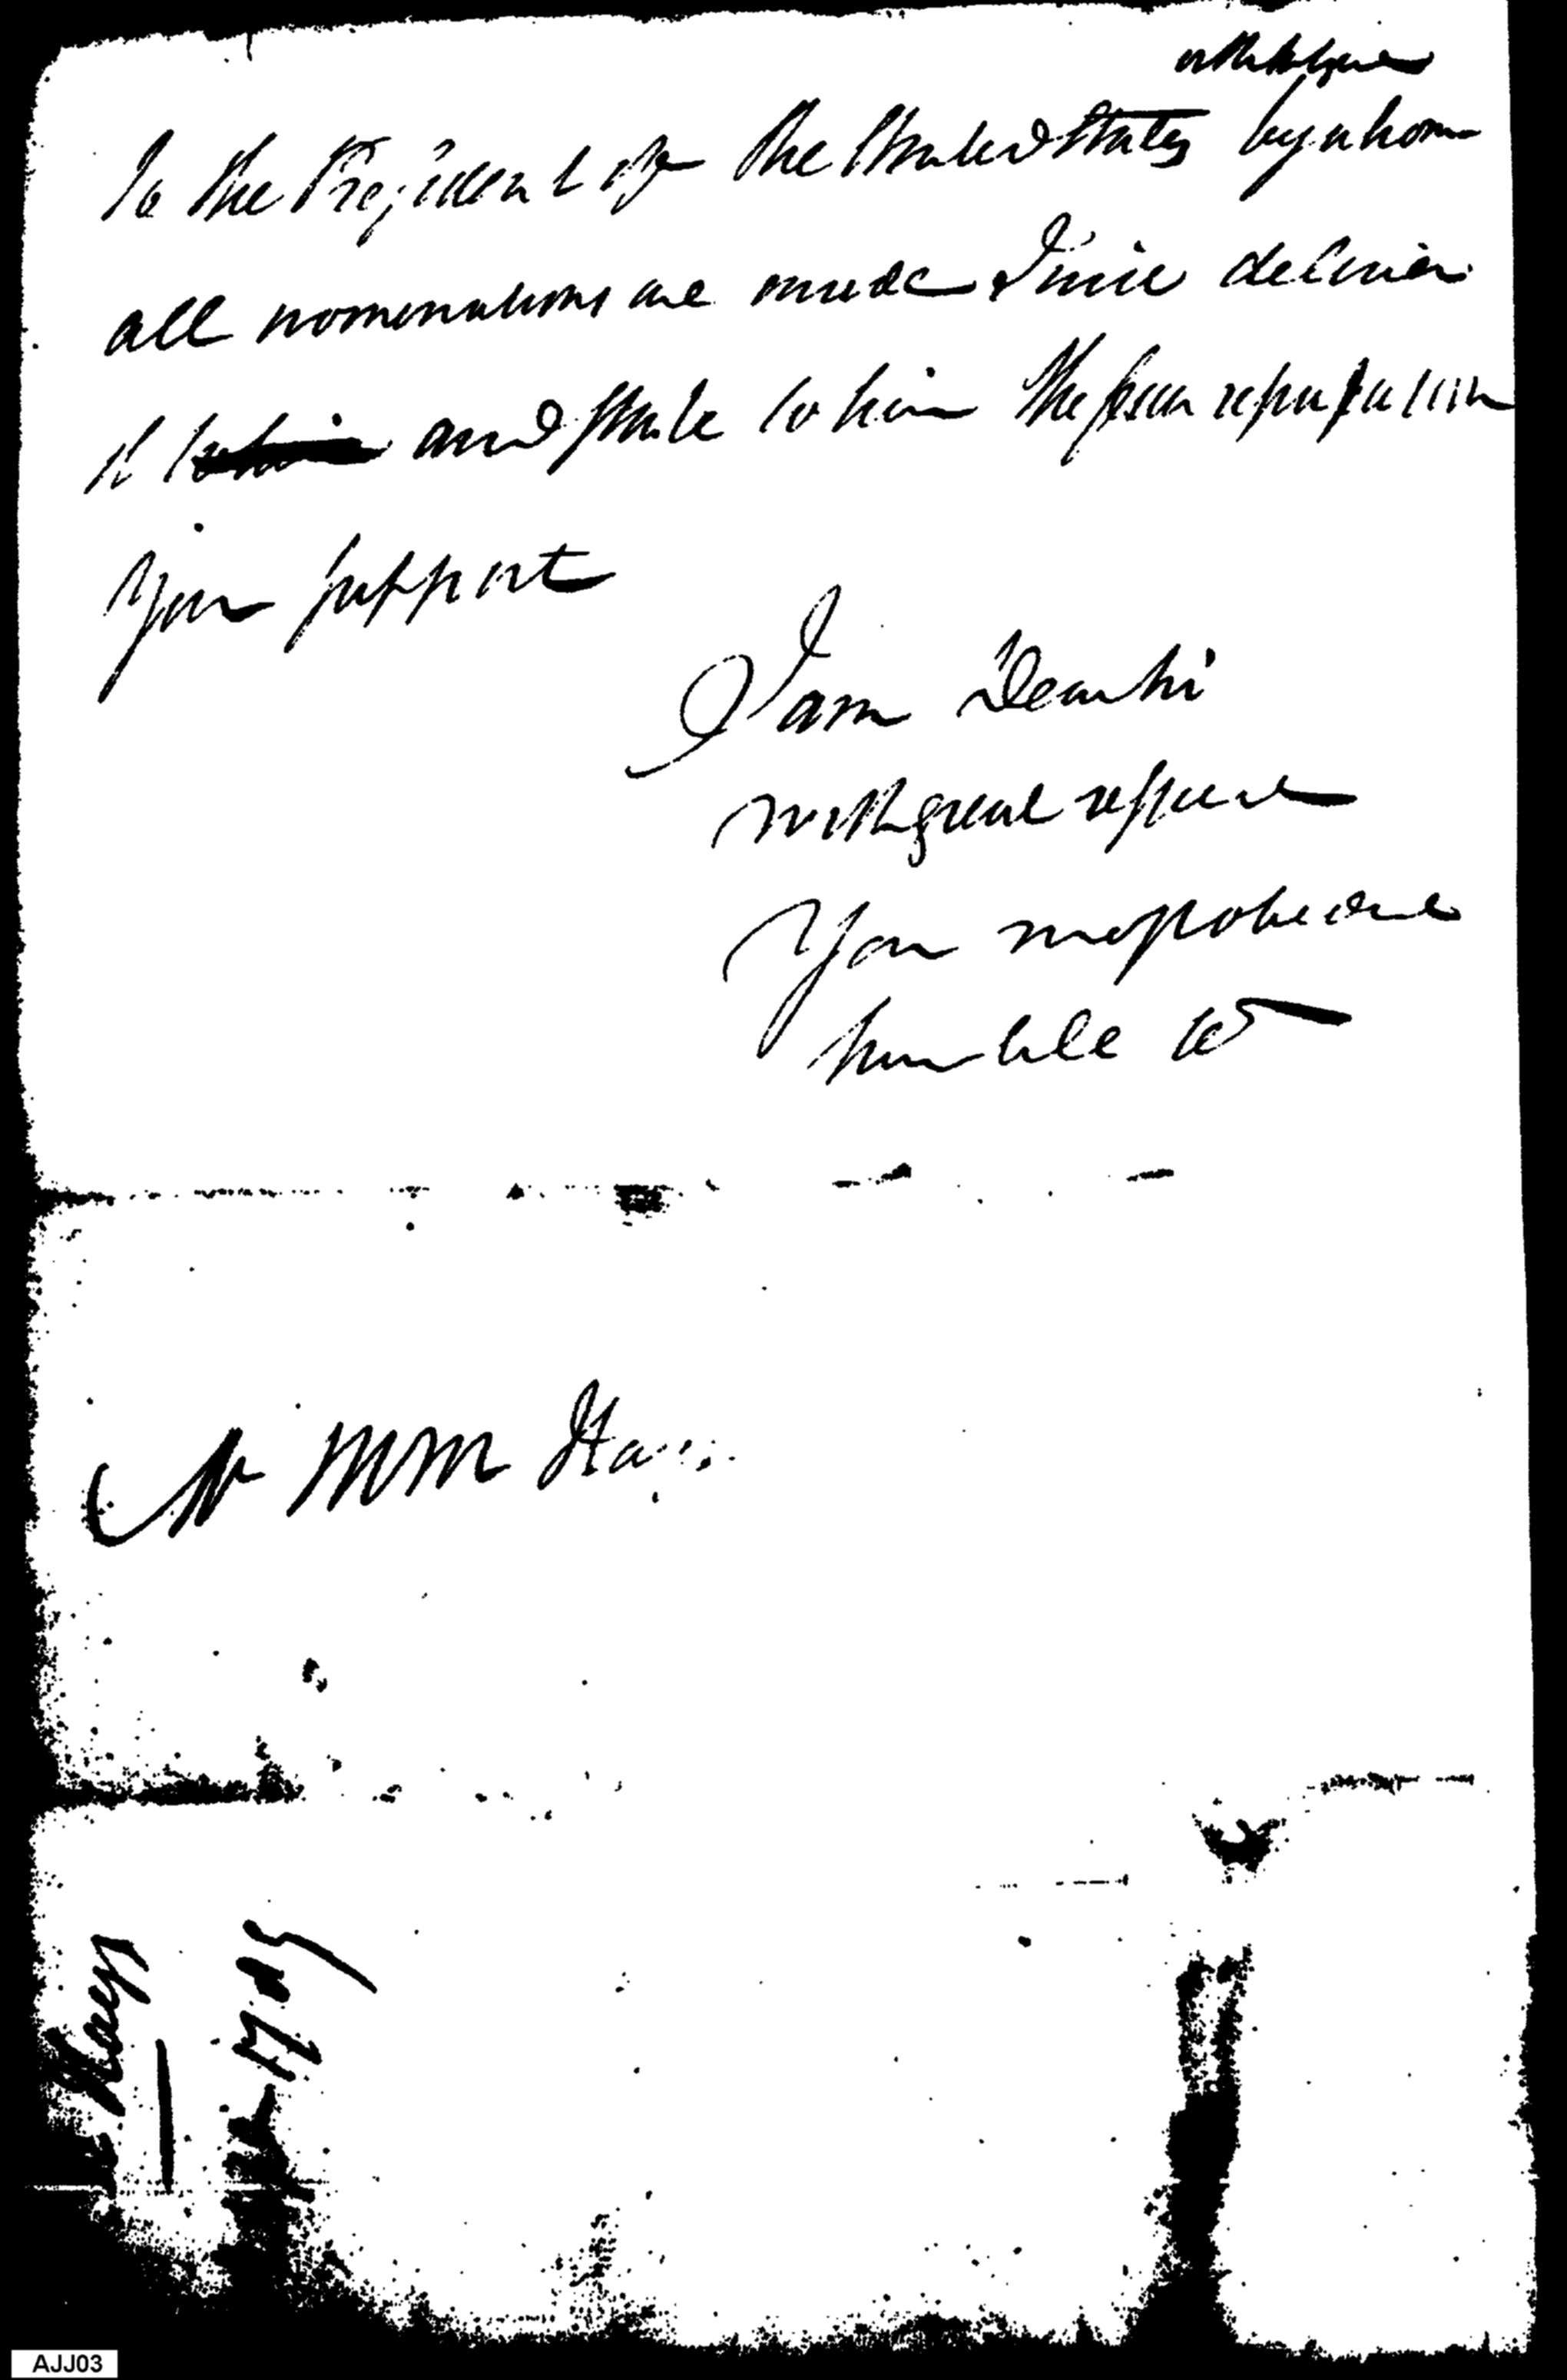 To the President of the United States by whom
all nominations are made I will deliver
it to him and state to him the fair reputation
you support
I am Dear Sir
with great respect
Your most obedient
humble
Mr M M Hays
Hays
AJJ03